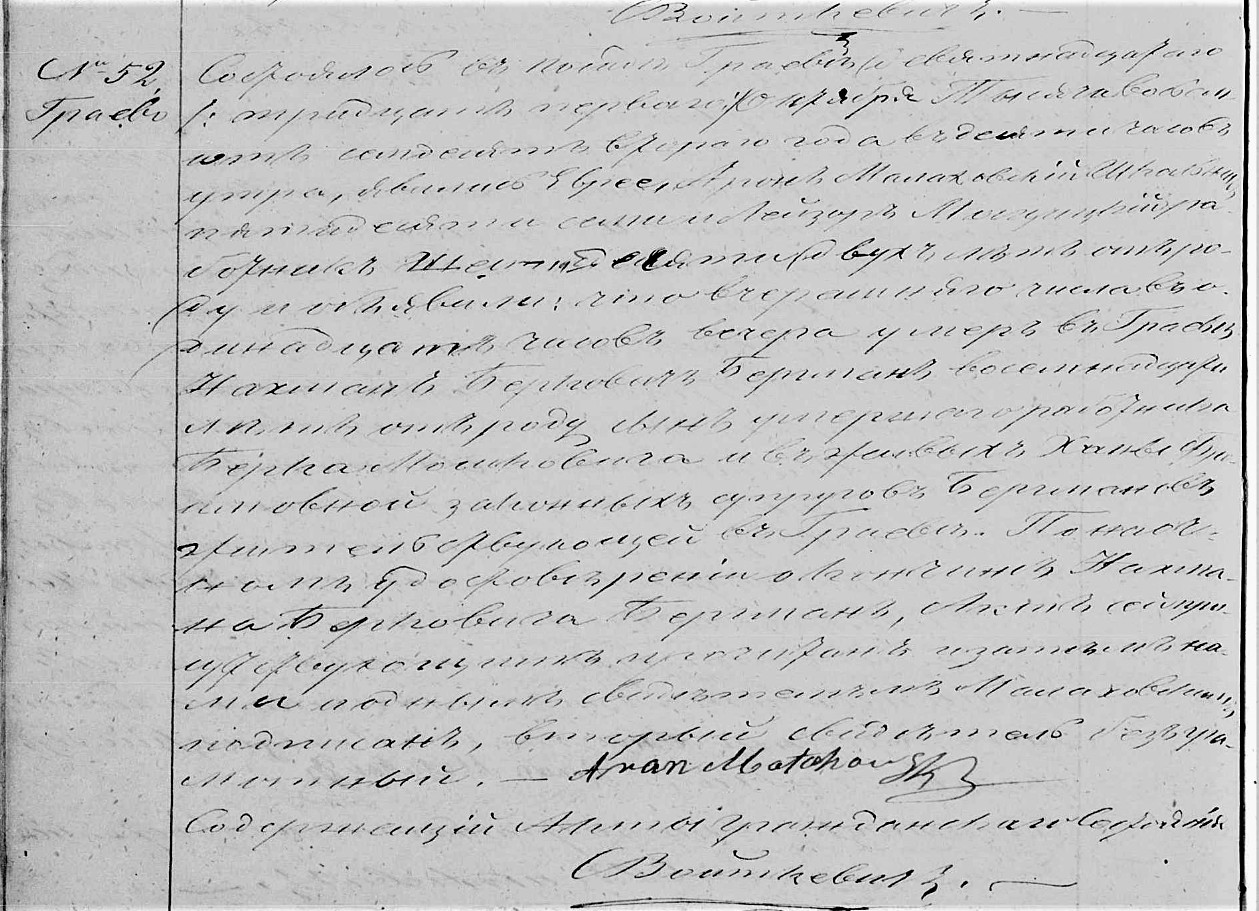 Войткевичъ.
№ 52
Граево
Состоялось въ посадѣ Граевѣ девятнадцатаго
/: тридцать перваго / Октября Тысяча восем-
сотъ семдесятъ втораго года въ десяти часовъ
утра, явились Евреи, Аронъ Малаховскій
пятидесяти семи и Лейзоръ работникъ
шестидесяти двухъ лѣтъ отъ ро-
ду и объявили: что вчерашняго числа въ о-
динадцать часовъ вечера умеръ въ Граевѣ
Нахманъ Берковичъ Бергманъ восемнадцати
лѣтъ отъ роду сынъ умершаго работника
Берка Мошковича и въ живыхъ Ханы
законныхъ супруговъ Бергмановъ
жительствующей въ Граевѣ. По наоч-
номъ удостовѣреніи о кончинѣ Нахма-
на Берковича Бергманъ, Актъ сей прису-
тствующимъ прочитанъ и затѣмъ на-
ми и однымъ свидѣтелемъ Малаховскимъ
подписанъ, вторый свидѣтель безгра-
мотный. — Aran Malchowski
Содержащій Акты Гражданскаго Состоянія
Войткевичъ. —